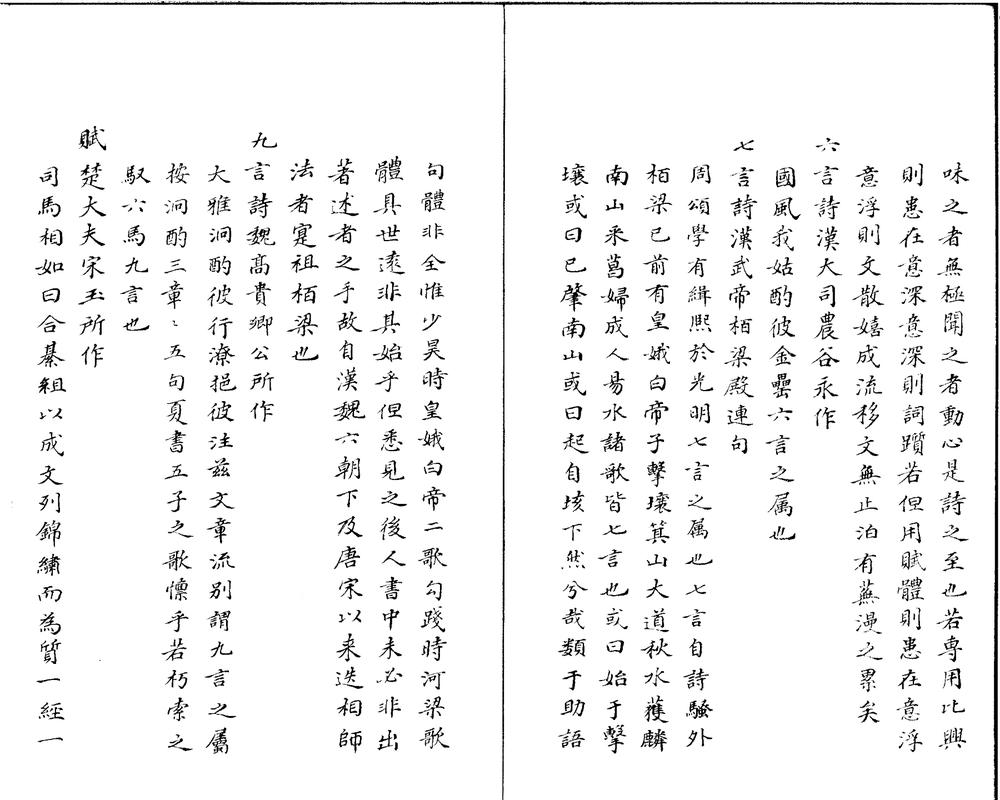 味之者無極聞之者動心是詩之至也若專用比興
則患在意深意深則詞躓若但用賦體則患在意浮
意浮則文散嬉成流移文無止泊有蕪漫之累矣
六言詩漢大司農谷永作
國風我姑酌彼金罍六言之属也
七言詩漢武帝栢梁殿連句
周頌學有緝熙於光明七言之属也七言自詩騷外
栢梁已前有皇娥白帝子擊壤箕山大道秋水獲麟
南山采葛婦成人易水諸歌皆七言也或曰始于擊
壤或曰已肇南山或曰起自垓下然兮哉類于助語
句體非全惟少昊時皇娥白帝二歌勾踐時河梁歌
體具世遠非其始乎但悉見之後人書中未必非出
著述者之手故自漢魏六朝下及唐宋以来迭相師
法者寔祖栢梁也
九言詩魏髙貴卿公所作
大雅泂酌彼行潦挹彼注兹文章流别謂九言之屬
按泂酌三章〻五句夏書五子之歌懍乎若朽索之
馭六馬九言也
賦楚大夫宋玉所作
司馬相如曰合綦組以成文列錦繡而為質一經一